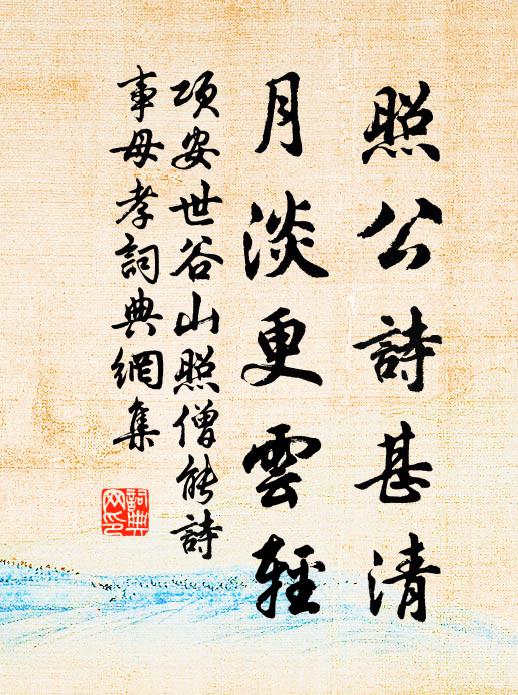 照公詩甚清
月淡更雲輕
項安世谷山照僧能詩
事母孝詞典網集
詞典
网印